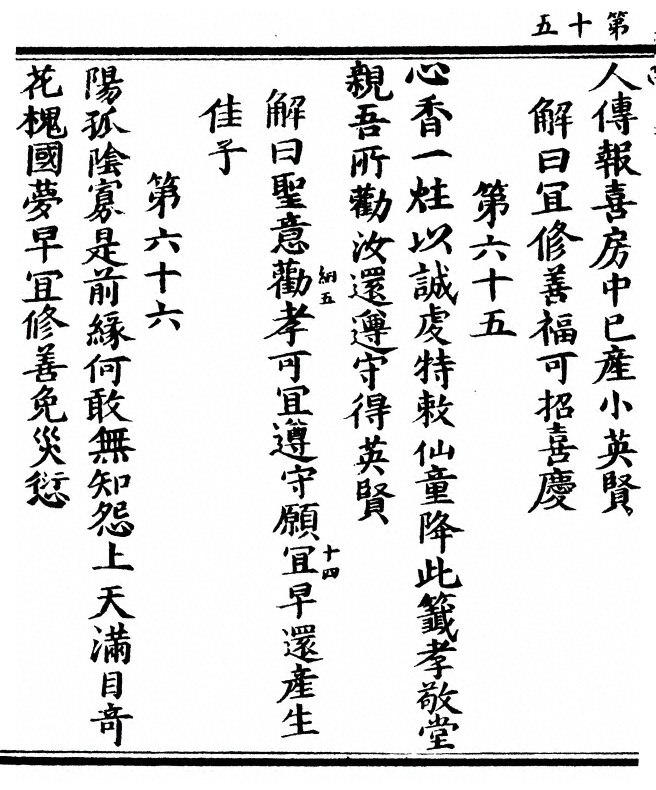 第十五
人傳報喜房中已產小英賢
解曰冝修善福可招喜慶
第六十五
心香一炷以誠虔特敕仙童降此籤孝敬堂
親吾所勸汝還遵守得英賢
解曰聖意勸孝可冝遵守願冝早還產生
納五
十四
佳子
第六十六
陽孤陰寡是前緣何敢無知怨上天滿目竒
花槐國夢早冝修善免災愆